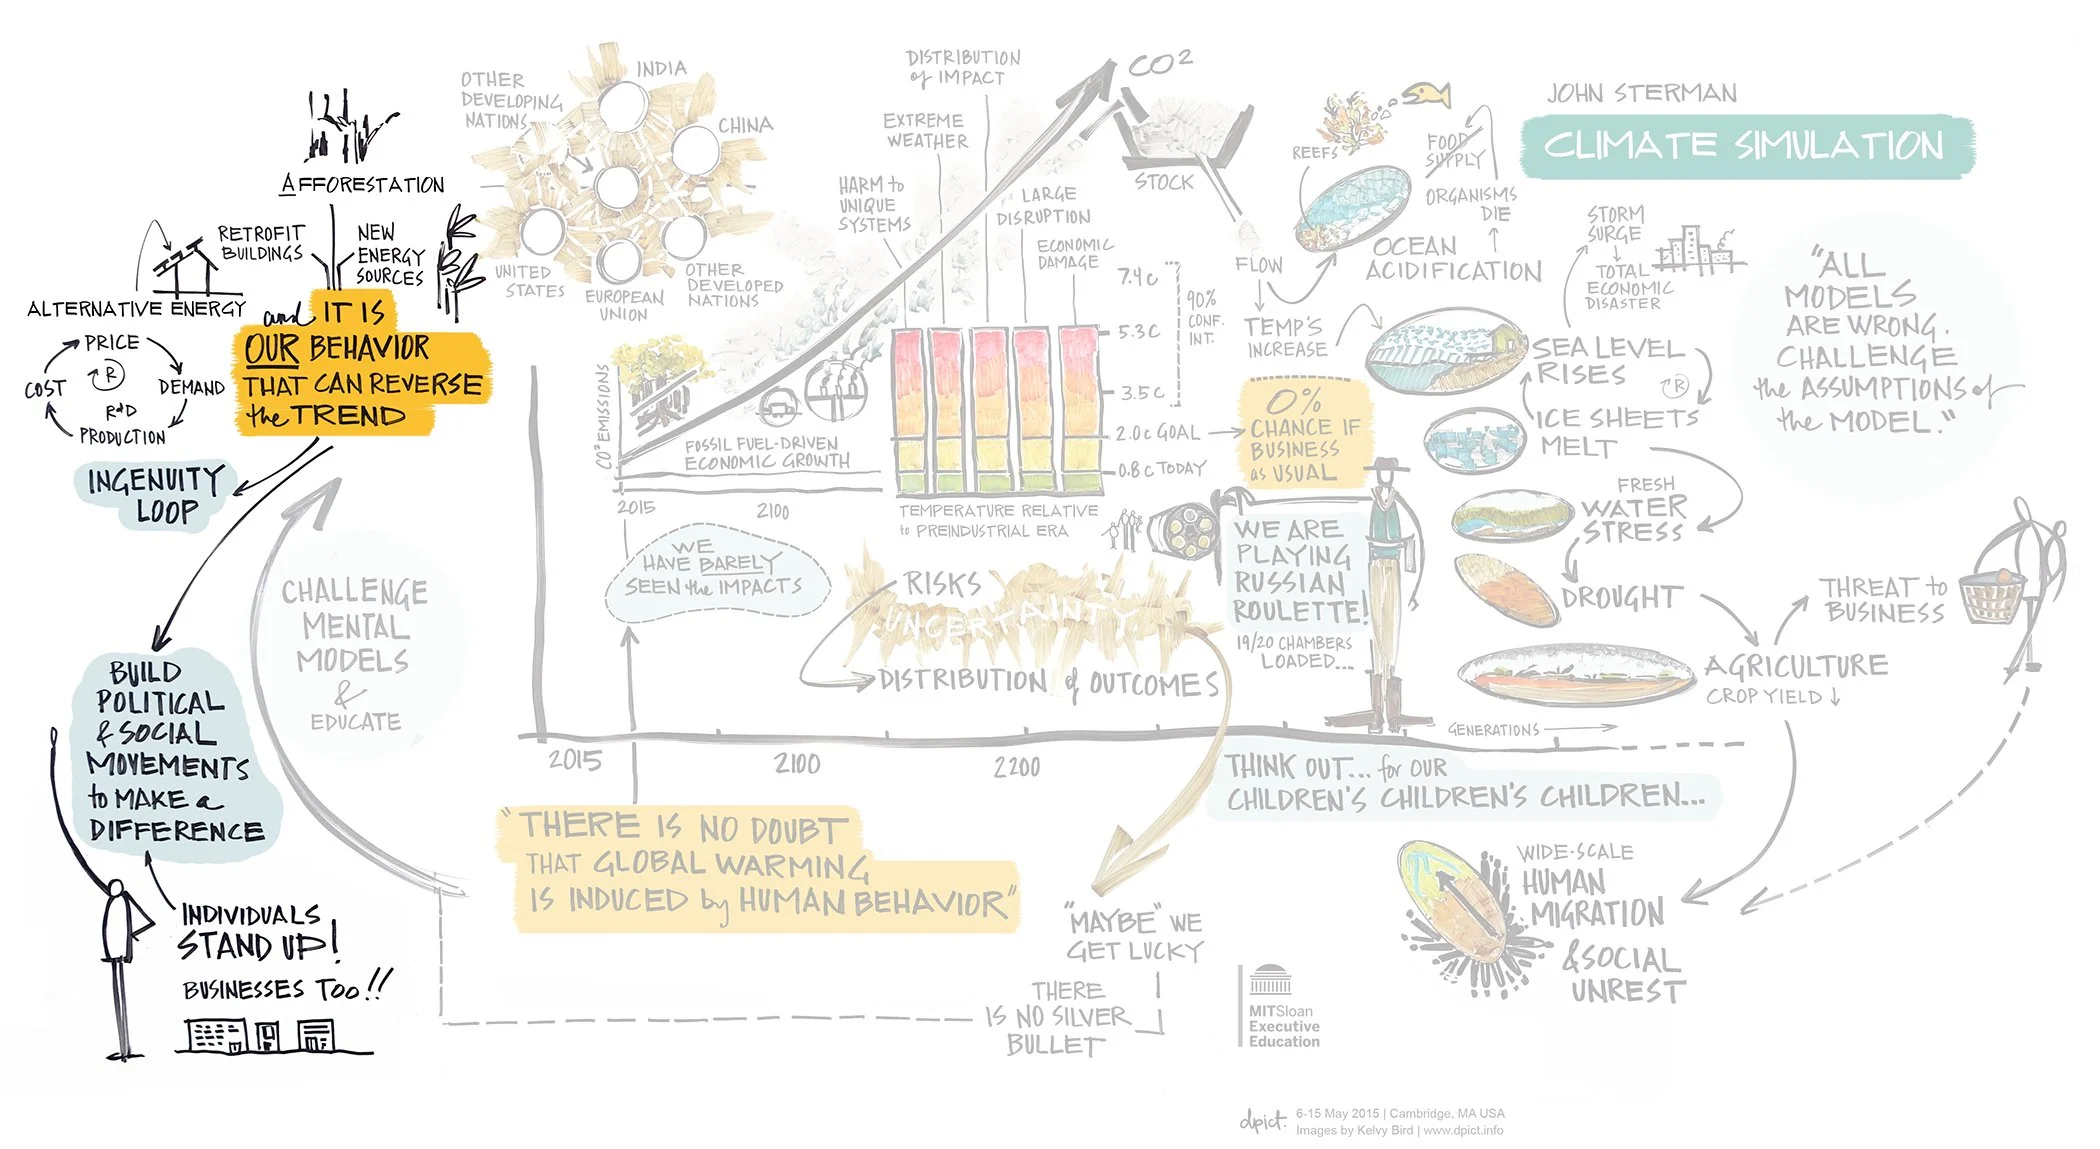 JOHN STERMAN
CLIMATE SIMULATION
AFFORESTATION
RETROFIT
BUILDINGS
NEW
ENERGY
SOURCES
ALTERNATIVE ENERGY
and IT IS
OUR BEHAVIOR
THAT CAN REVERSE
the TREND
PRICE
DEMAND
R&D
PRODUCTION
COST
R
INGENUITY
LOOP
BUILD
POLITICAL
& SOCIAL
MOVEMENTS
to MAKE a
DIFFERENCE
INDIVIDUALS
STAND UP!
BUSINESSES TOO!!
CHALLENGE
MENTAL
MODELS
&
EDUCATE
OTHER
DEVELOPING
NATIONS
INDIA
CHINA
UNITED
STATES
EUROPEAN
UNION
OTHER
DEVELOPED
NATIONS
CO² EMISSIONS
FOSSIL FUEL-DRIVEN
ECONOMIC GROWTH
2015
2100
CO²
STOCK
FLOW
DISTRIBUTION
of IMPACT
EXTREME
WEATHER
HARM to
UNIQUE
SYSTEMS
LARGE
DISRUPTION
ECONOMIC
DAMAGE
7.4 C
5.3 C
3.5 C
2.0 C GOAL
0.8 C TODAY
90%
CONF.
INT.
TEMPERATURE RELATIVE
to PREINDUSTRIAL ERA
0%
CHANCE IF
BUSINESS
as USUAL
WE
HAVE BARELY
SEEN the IMPACTS
RISKS
UNCERTAINTY
DISTRIBUTION of OUTCOMES
WE ARE
PLAYING
RUSSIAN
ROULETTE!
19/20 CHAMBERS
LOADED...
2015
2100
2200
GENERATIONS
THINK OUT... for OUR
CHILDREN'S CHILDREN'S CHILDREN...
"THERE IS NO DOUBT
THAT GLOBAL WARMING
IS INDUCED by HUMAN BEHAVIOR"
"MAYBE" WE
GET LUCKY
THERE
IS NO SILVER
BULLET
REEFS
FOOD
SUPPLY
ORGANISMS
DIE
OCEAN
ACIDIFICATION
TEMP'S
INCREASE
STORM
SURGE
TOTAL
ECONOMIC
DISASTER
SEA LEVEL
RISES
R
ICE SHEETS
MELT
FRESH
WATER
STRESS
DROUGHT
AGRICULTURE
CROP YIELD ↓
THREAT to
BUSINESS
"ALL
MODELS
ARE WRONG.
CHALLENGE
the ASSUMPTIONS of
the MODEL."
WIDE-SCALE
HUMAN
MIGRATION
& SOCIAL
UNREST
MITSloan
Executive
Education
dpict.
6-15 May 2015 | Cambridge, MA USA
Images by Kelvy Bird | www.dpict.info